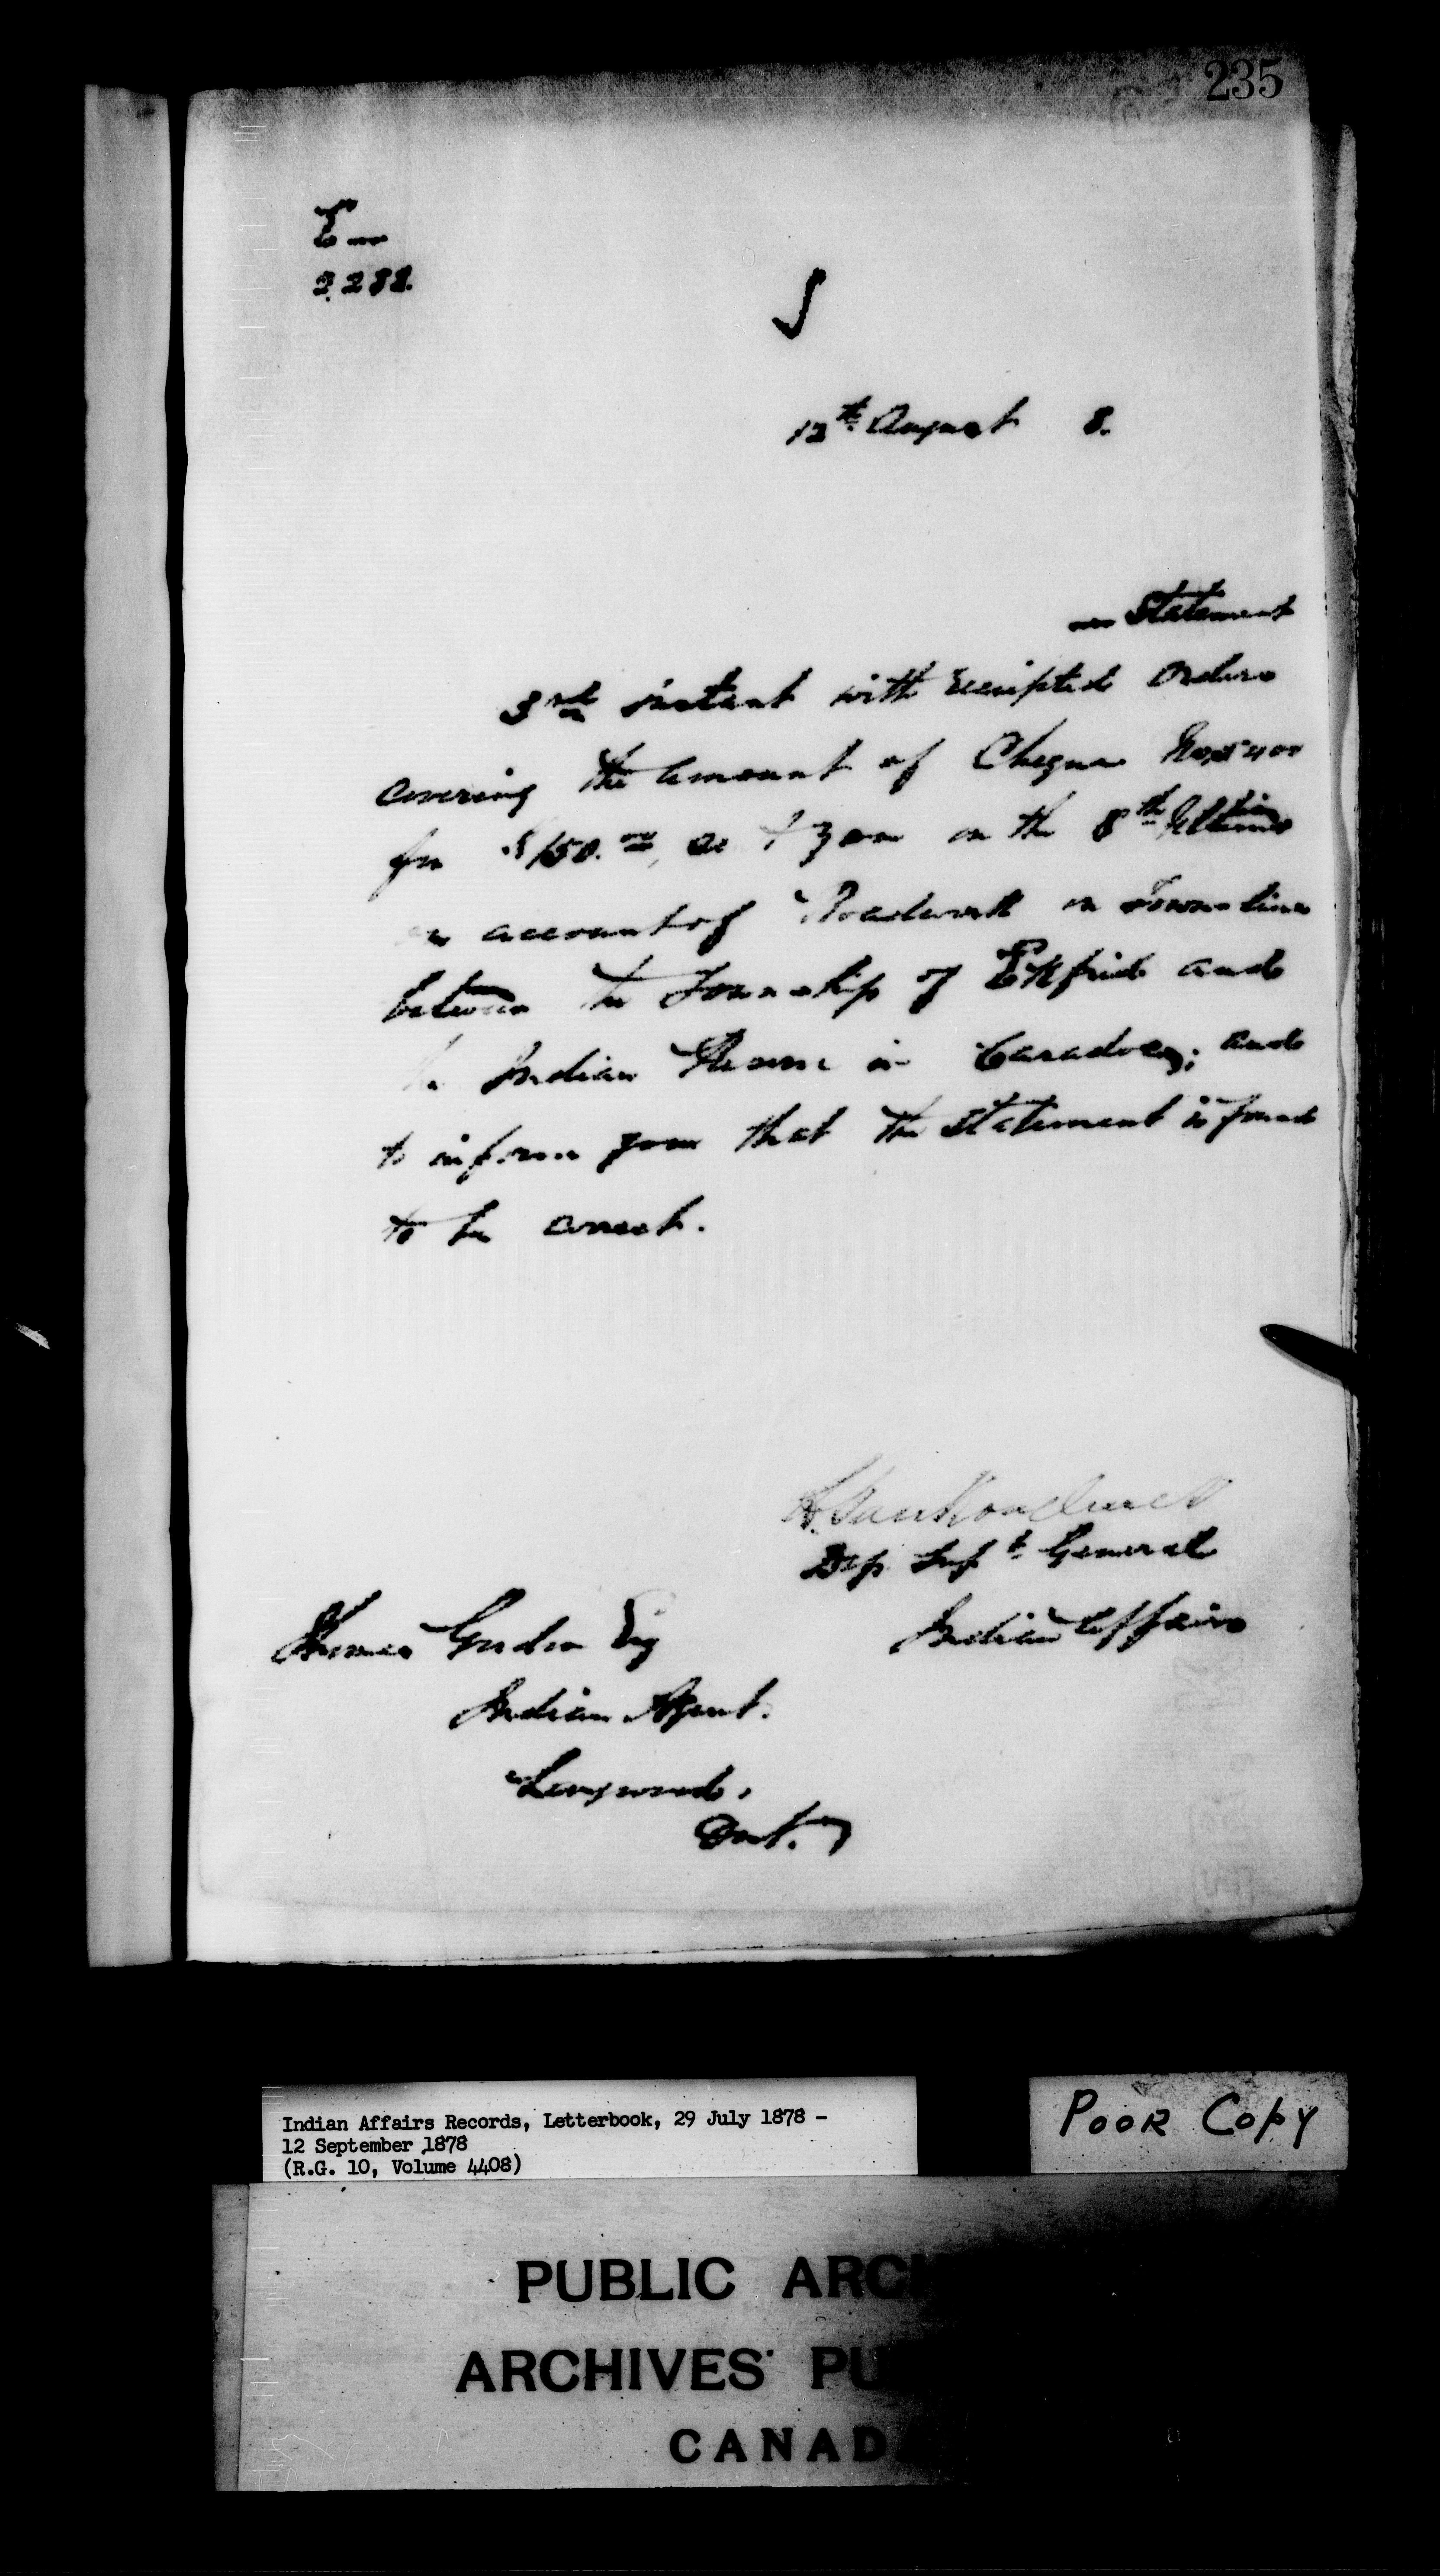 235
2,288.
12th August 8.
Statement
3rd instant with receipted orders
covering the amount of Cheque
for $150.00, on the 8th Ultimo
on account of Roadwork on Town line
between the Township of Ekfrid and
Indian Reserve in Caradoc; and
to inform you that the Statement is found
to be correct.
L. Vankoughnet
Dep Supt General
Indian Affairs
Thomas Gordon Esq
Indian Agent.
Longwoods,
Ont.
Indian Affairs Records, Letterbook, 29 July 1878 -
12 September 1878
(R.G. 10, Volume 4408)
POOR COPY
PUBLIC ARCH
ARCHIVES PU
CANADA